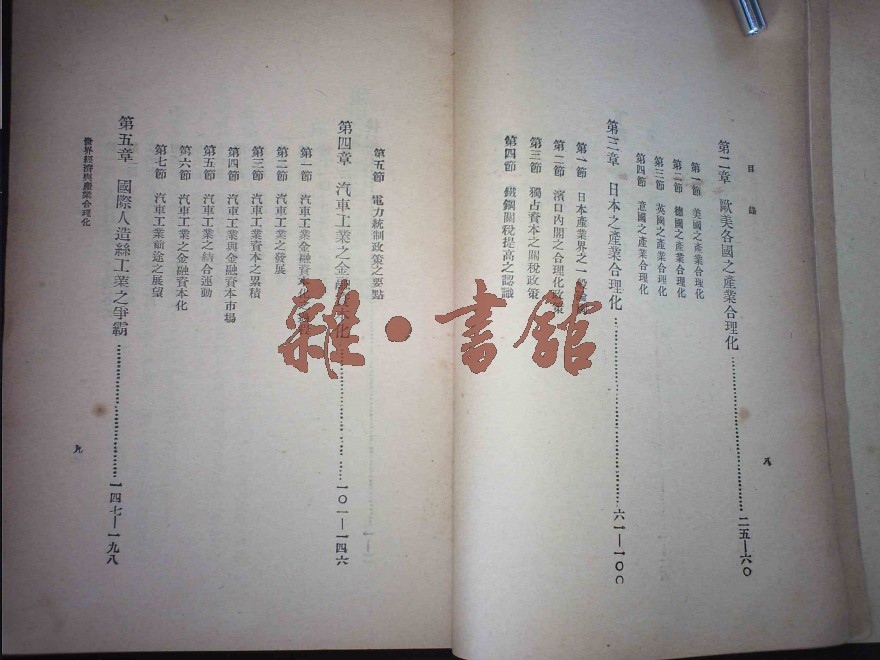 目錄
第二章 歐美各國之產業合理化……二五—六〇
第一節 美國之產業合理化
第二節 德國之產業合理化
第三節 英國之產業合理化
第四節 意國之產業合理化
第三章 日本之產業合理化……六一—一〇〇
第一節 日本產業界之一般
第二節 濱口內閣之合理化政策
第三節 獨占資本之關稅政策
第四節 鐵鋼關稅提高之認識
八
第五節 電力統制政策之要點
第四章 汽車工業之金融資本化……一〇一—一四六
第一節 汽車工業金融資本化
第二節 汽車工業之發展
第三節 汽車工業資本之累積
第四節 汽車工業與金融資本市場
第五節 汽車工業之結合運動
第六節 汽車工業之金融資本化
第七節 汽車工業前途之展望
第五章 國際人造絲工業之爭霸……一四七—一九八
世界經濟與產業合理化
九
雜·書館